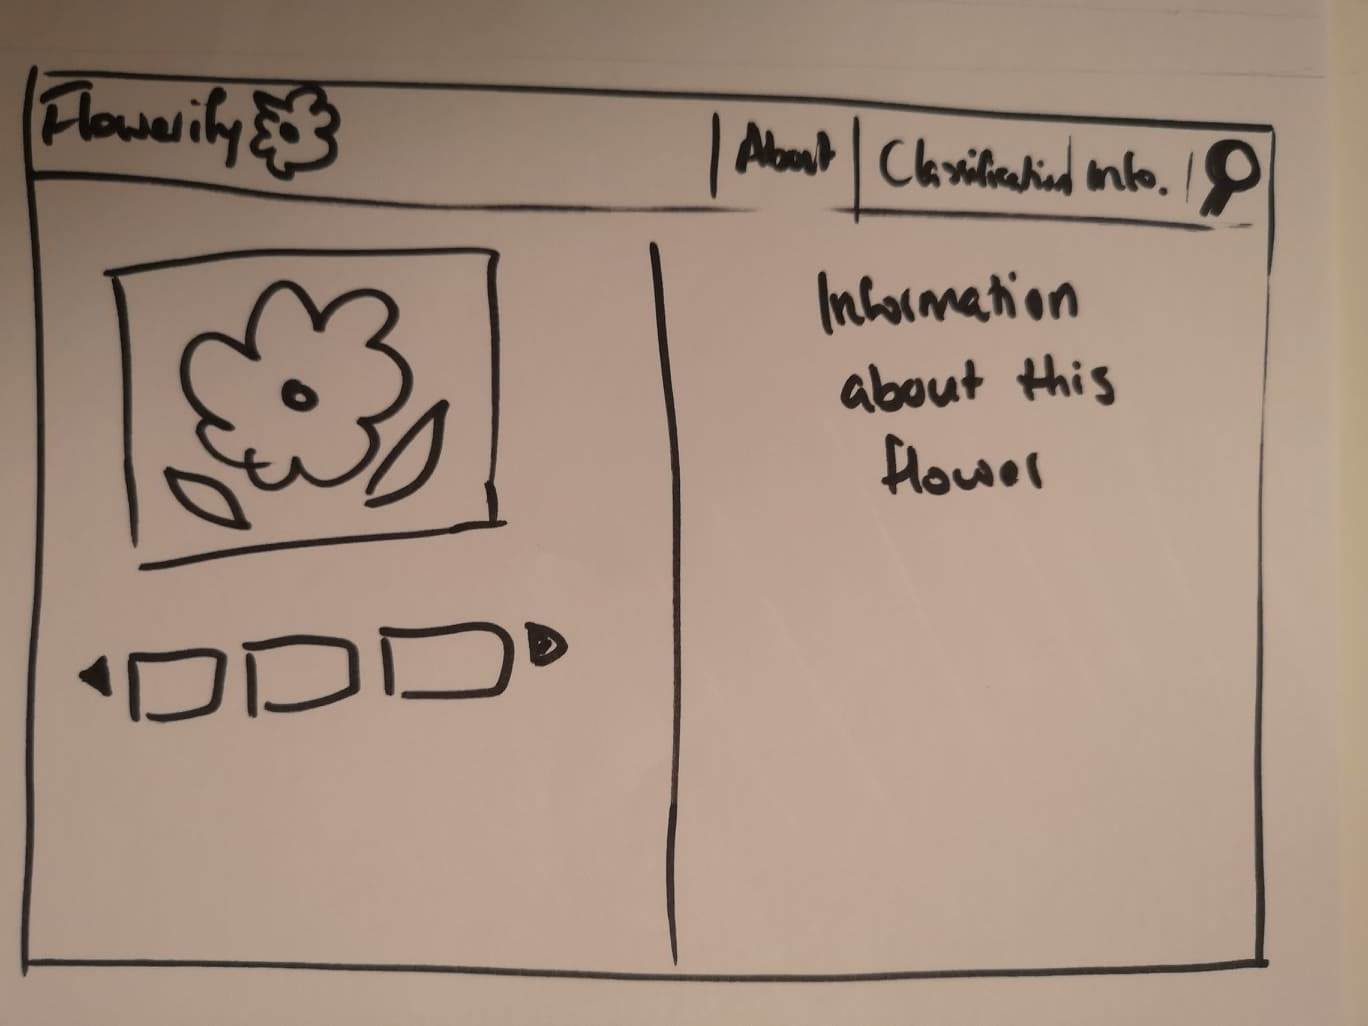 Flowerify
About
Classification info.
Information
about this
flower